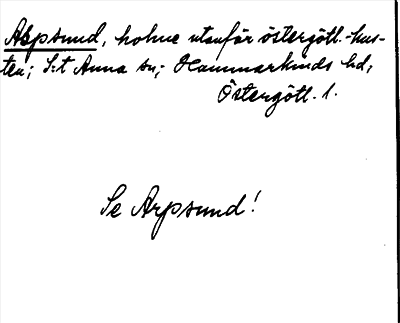 Aspsund, holme utanför östergötl.-kus-
ten; S:t Anna sn; Hammarkinds hd,
Östergötl. l.
Se Arpsund!